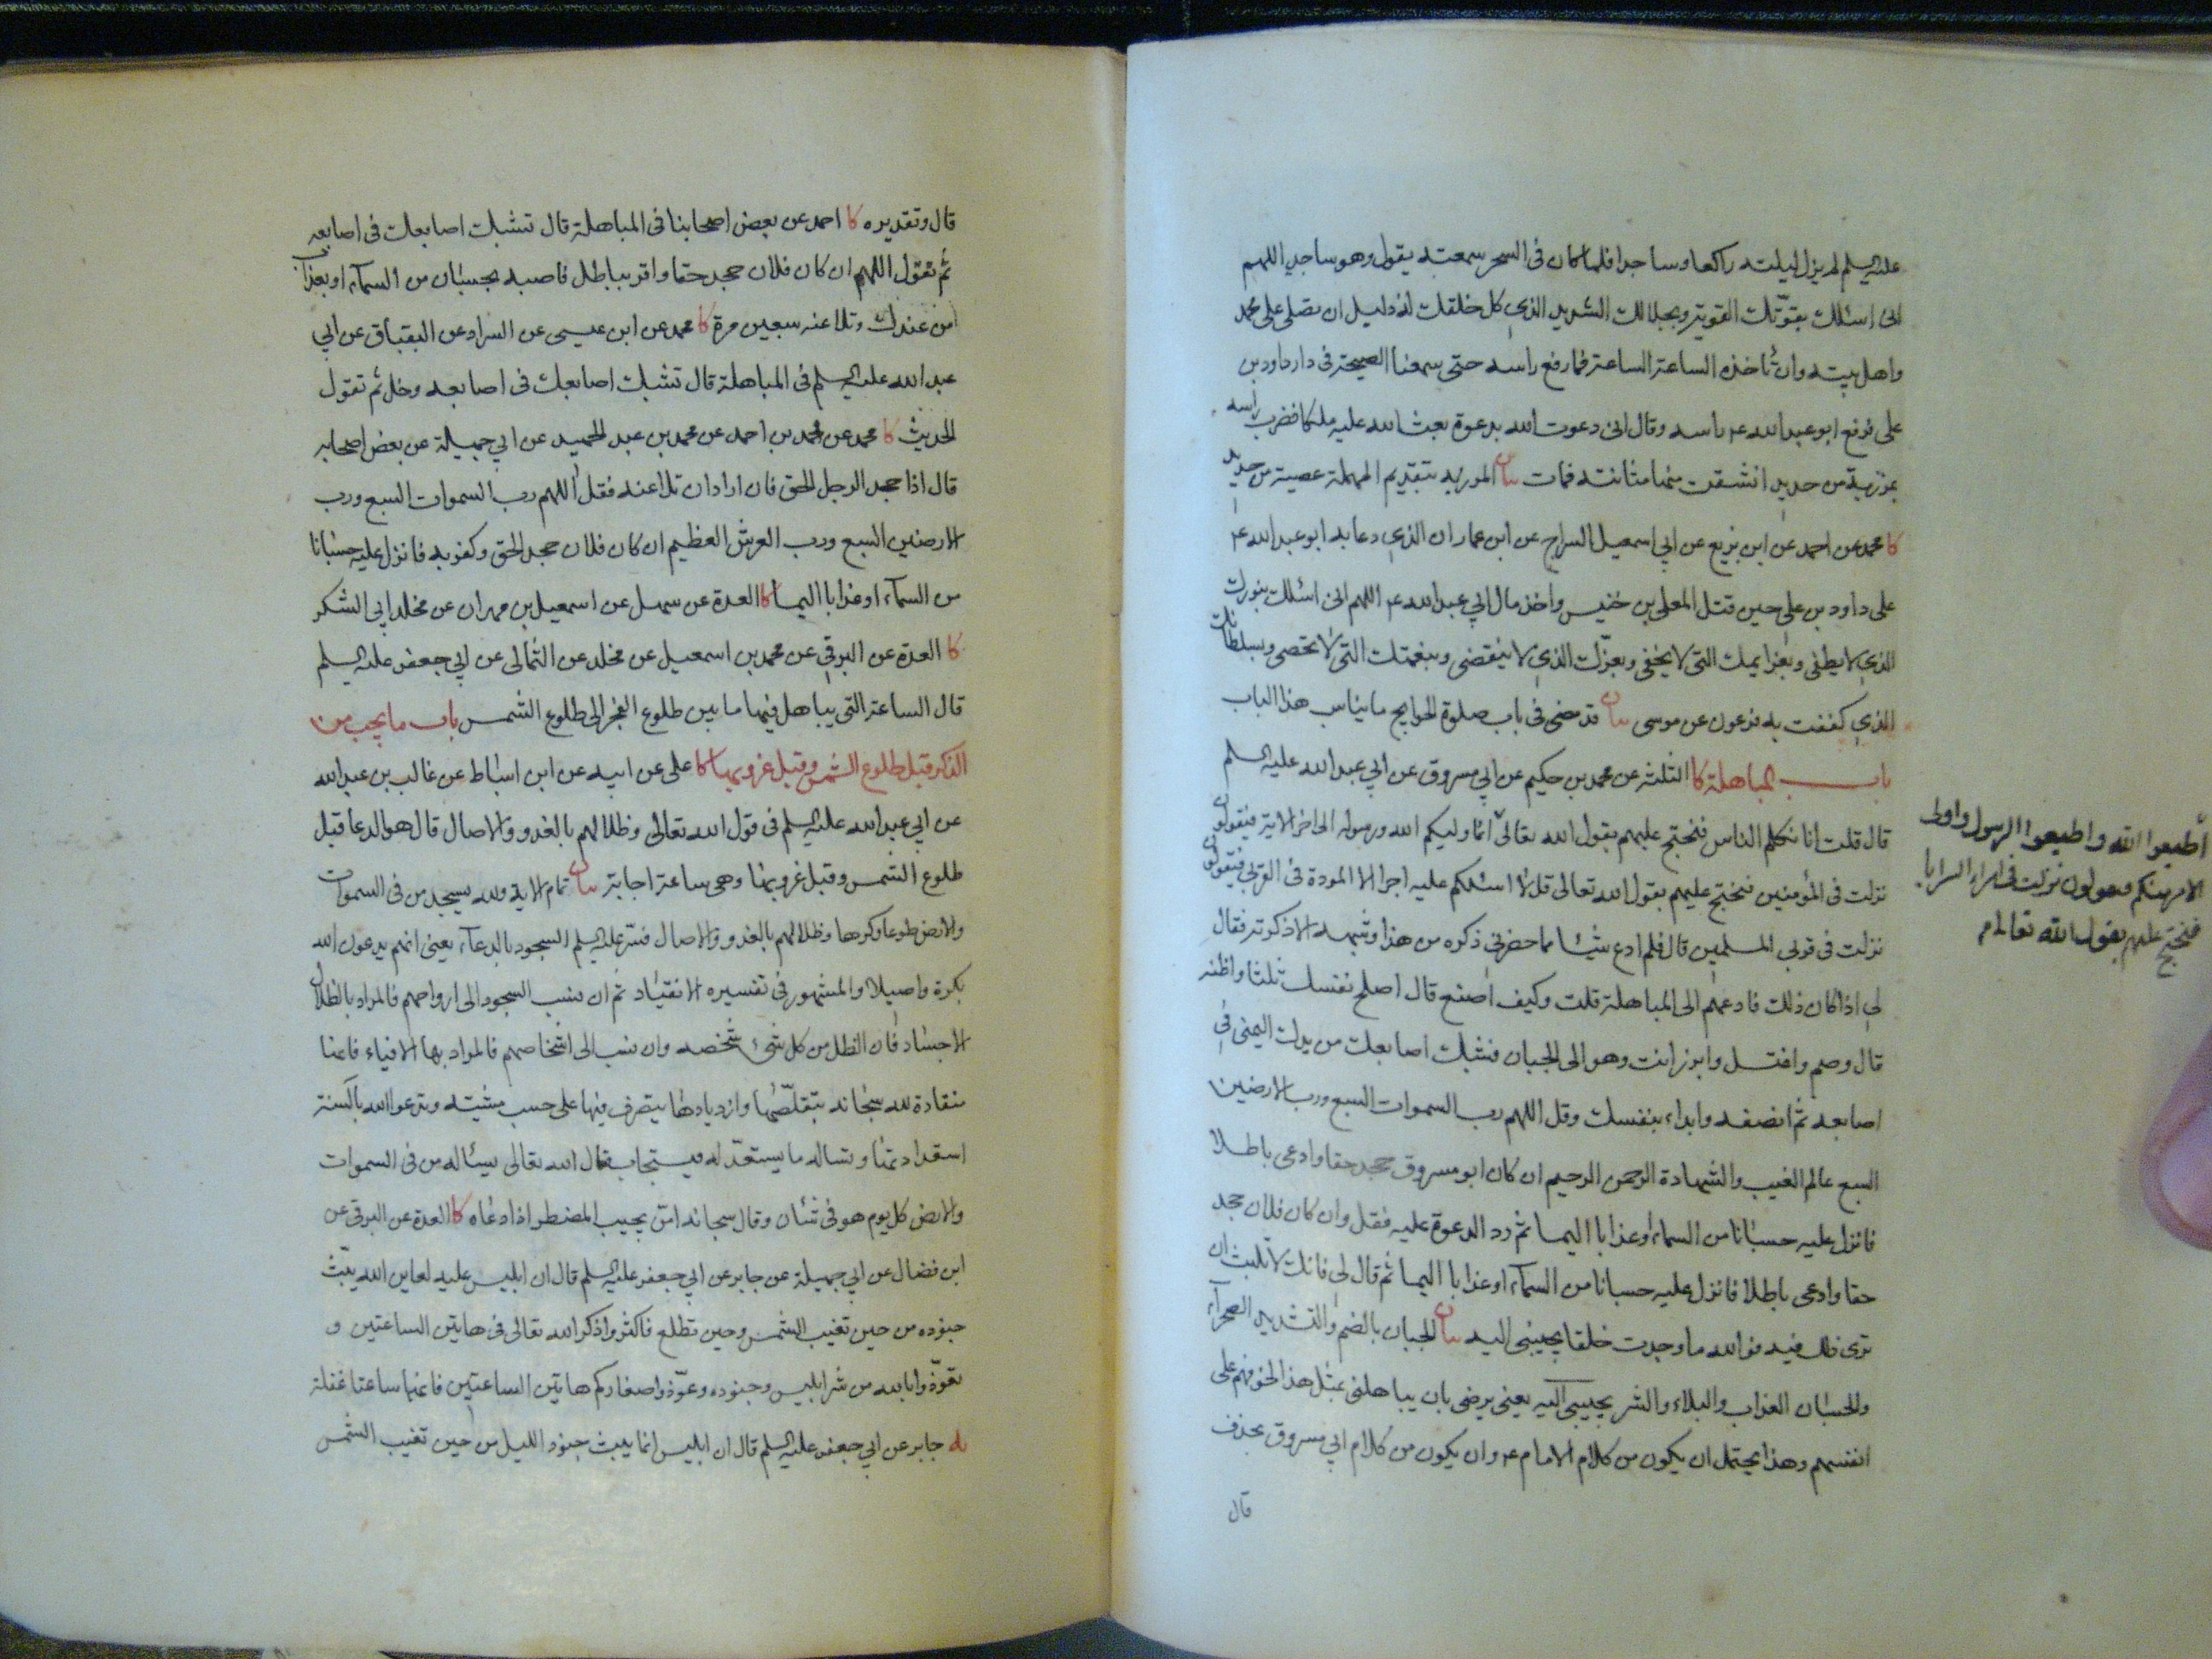 عليه السلم لم يزل ليلته راكعا وساجدا فلما كان فى السحر سمعته يقول وهو ساجد اللهم
انى اسئلك بقوتك القوية وبجلالك الشديد الذي كل خلقك له ذليل ان تصلى على محمد
واهل بيته وان تأخذه الساعة الساعة فما رفع راسه حتى سمعنا الصيحة فى دار داود بن
على فرفع ابو عبد الله ع راسه وقال انى دعوت الله بدعوة بعث الله عليه ملكا فضرب راسه
بمرزبة من حديد انشقت منها مثانته فمات بيان المرزبه بتقديم المهملة عصية من حديد
كا محمد عن احمد عن ابن بزيع عن ابي اسمعيل السراج عن ابن عمار ان الذي دعا به ابو عبد الله ع
على داود بن على حين قتل المعلى بن خنيس واخذ مال ابي عبد الله ع اللهم انى اسئلك بنورك
الذي لا يطفى وبعزايمك التى لا يخفى وبعزك الذي لا ينقضى وبنعمتك التى لا تحصى وبسلطانك
الذي كففت به فرعون عن موسى بيان قد مضى فى باب صلوة الحوايج ما يناسب هذا الباب
باب المباهلة كا الثلثه عن محمد بن حكيم عن ابي مسروق عن ابي عبد الله عليه السلم
قال قلت انا نكلم الناس فنحتج عليهم بقول الله تعالى انما وليكم الله ورسوله الى اخر الاية فيقولون
نزلت فى المؤمنين فنحتج عليهم بقول الله تعالى قل لا اسئلكم عليه اجرا الا المودة فى القربى فيقولون
نزلت فى قربى المسلمين قال فلم ادع شيئا مما حضرني ذكره من هذا وشبهه الا ذكرته فقال
لي اذا كان ذلك فادعهم الى المباهلة قلت وكيف اصنع قال اصلح نفسك ثلثا واظنه
قال وصم واغتسل وابرز انت وهو الى الجبان فشبك اصابعك من يدك اليمنى في
اصابعه ثم انصفه وابداء بنفسك وقل اللهم رب السموات السبع ورب الارضين
السبع عالم الغيب والشهادة الرحمن الرحيم ان كان ابو مسروق جحد حقا وادعى باطلا
فانزل عليه حسبانا من السماء او عذابا اليما ثم رد الدعوة عليه فقل وان كان فلان جحد
حقا وادعى باطلا فانزل عليه حسبانا من السمآء او عذابا اليما ثم قال لي فانك لا تلبث ان
ترى ذلك فيه فوالله ما وجدت خلقا يجيبني اليه بيان الجبان بالضم والتشديد الصحرآء
والحسبان العذاب والبلاء والشر يجيبني اليه يعني يرضى بان يباهلنى بمثل هذا لخوفهم على
انفسهم وهذا يحتمل ان يكون من كلام الامام ع وان يكون من كلام ابي مسروق بحذف
قال
أطيعوا الله واطيعوا الرسول واولى
الامر منكم فيقولون نزلت فى امراء السرايا
فنحتج عليهم بقول الله تعالى
قال وتقديره كا احمد عن بعض اصحابنا فى المباهلة قال تشبك اصابعك فى اصابعه
ثم تقول اللهم ان كان فلان جحد حقا واقر بباطل فاصبه بحسبان من السمآء او بعذاب
من عندك وتلاعنه سبعين مرة كا محمد عن ابن عيسى عن السراد عن البقباق عن ابي
عبد الله عليه السلم فى المباهلة قال تشبك اصابعك فى اصابعه وخل ثم تقول
الحديث كا محمد عن محمد بن احمد عن محمد بن عبد الحميد عن ابي جميلة عن بعض اصحابه
قال اذا جحد الرجل الحق فان اراد ان تلاعنه فقل اللهم رب السموات السبع ورب
الارضين السبع ورب العرش العظيم ان كان فلان جحد الحق وكفر به فانزل عليه حسبانا
من السمآء او عذابا اليما كا العدة عن سهل عن اسمعيل بن مهران عن مخلد ابي الشكر
كا العدة عن البرقي عن محمد بن اسمعيل عن مخلد عن الثمالى عن ابي جعفر عليه السلم
قال الساعة التى يباهل فيها ما بين طلوع الفجر الى طلوع الشمس باب ما يجب من
الذكر قبل طلوع الشمس وقبل غروبها كا على عن ابيه عن ابن اسباط عن غالب بن عبد الله
عن ابي عبد الله عليه السلم فى قول الله تعالى وظلالهم بالغدو والاصال قال هو الدعا قبل
طلوع الشمس وقبل غروبها وهى ساعة اجابة بيان تمام الاية ولله يسجد من فى السموات
والارض طوعا وكرها وظلالهم بالغدو والاصال فسر عليه السلم السجود بالدعآء يعنى انهم يدعون الله
بكرة واصيلا والمشهور فى تفسيره الانقياد ثم ان نسب السجود الى ارواحهم فالمراد بالظلال
الاجساد فان الظل من كل شيء شخصه وان نسب الى اشخاصهم فالمراد بها الافياء فانها
منقادة لله سبحانه بتقلصها وازديادها يتصرف فيها على حسب مشيته وتدعو الله بالسنة
استعداداتها وتساله ما يستعد له فيستجاب قال الله تعالى يسئاله من فى السموات
والارض كل يوم هو فى شان وقال سبحانه امن يجيب المضطر اذا دعاه كا العدة عن البرقى عن
ابن فضال عن ابي جميلة عن جابر عن ابي جعفر عليه السلم قال ان ابليس عليه لعاين الله يبث
جنوده من حين تغيب الشمس وحين تطلع فاكثروا ذكر الله تعالى فى هاتين الساعتين و
تعوذوا بالله من شر ابليس وجنوده وعوذوا صغاركم هاتين الساعتين فانها ساعتا غفلة
يه جابر عن ابي جعفر عليه السلم قال ان ابليس انما يبث جنود الليل من حين تغيب الشمس